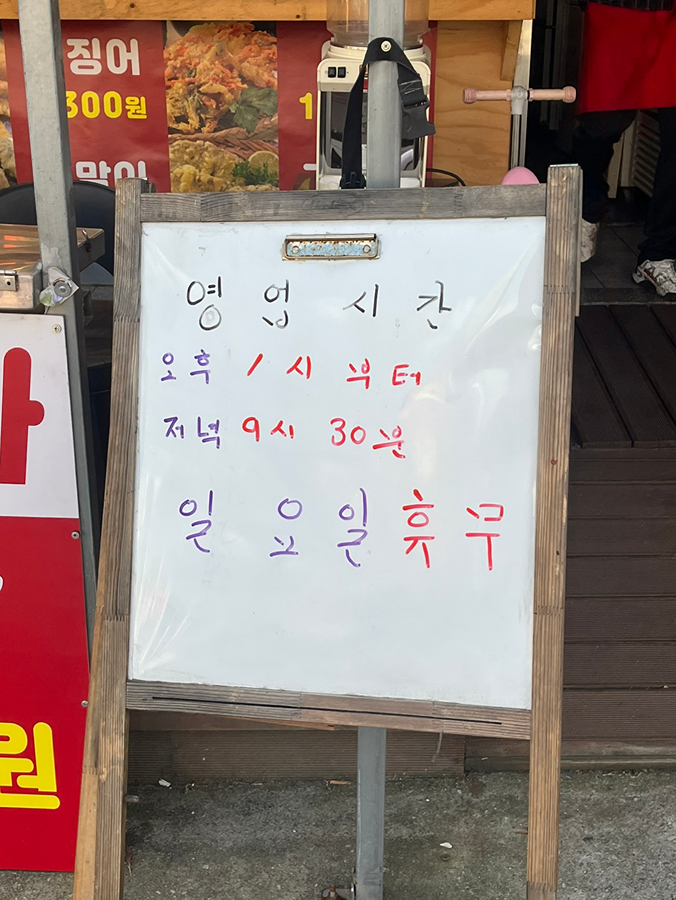 징어
300원
영 업 시 간
오후 1시 부터
저녁 9시 30분
일 요 일 휴 무
원